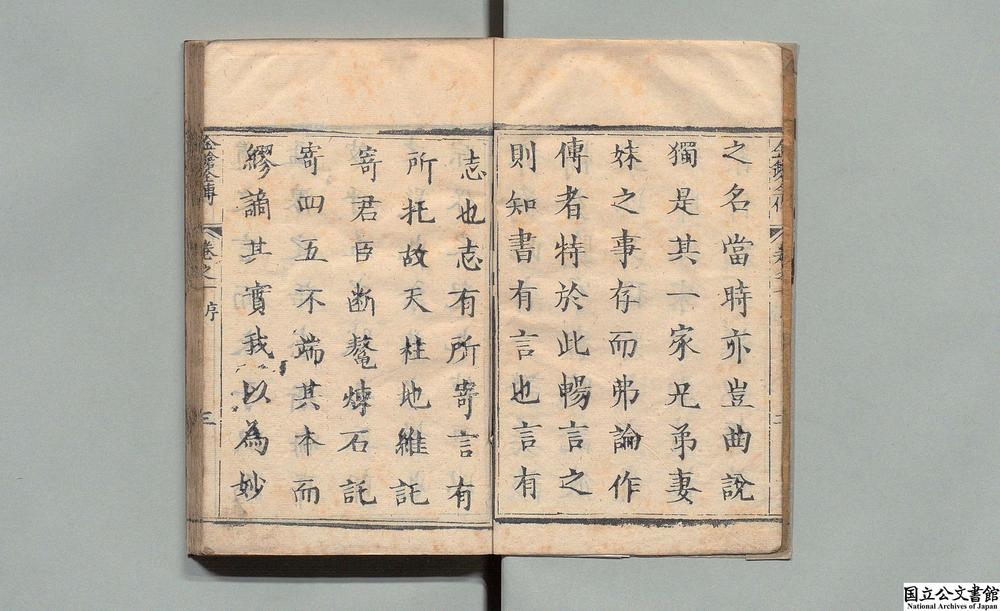 之名當時亦豈曲說
獨是其一家兄弟妻
妹之事存而弗論作
傳者特於此暢言之
則知書有言也言有
志也志有所寄言有
所托故天柱地維託
寄君臣断鼇煉石託
寄四五不端其本而
繆謫其實我以為妙
卷之一
序
三
国立公文書館
National Archives of Japan